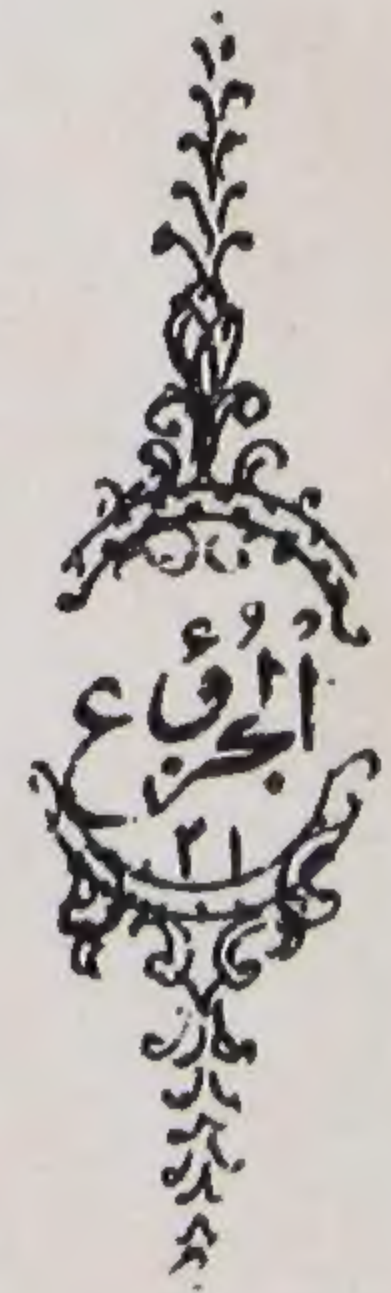 الجزء
٢١